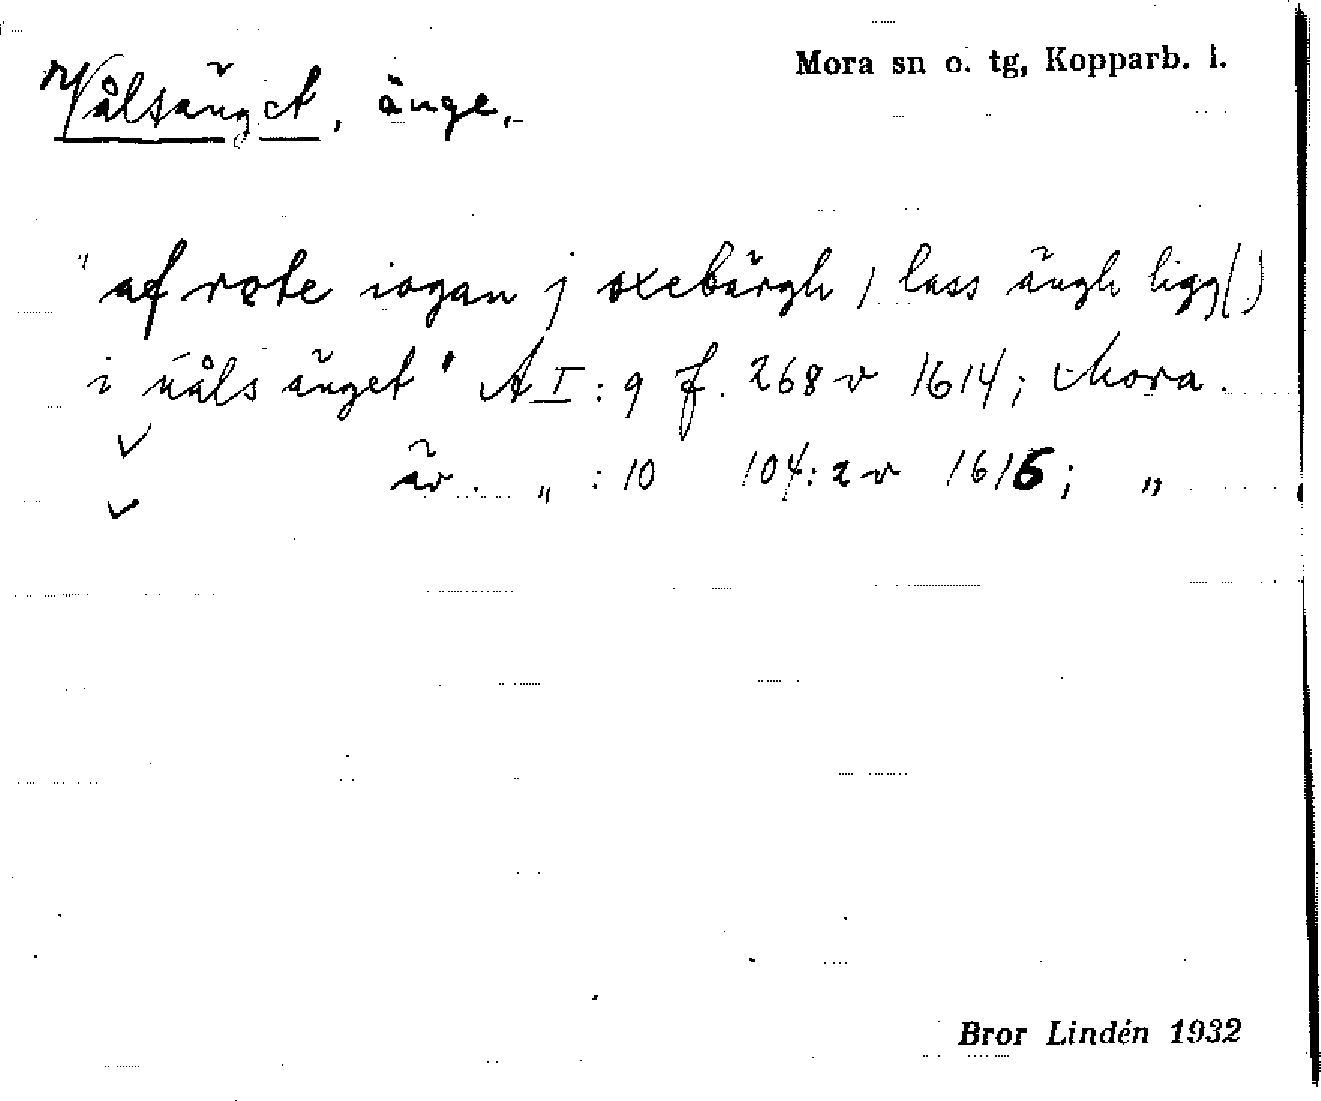 Mora sn o. tg, Kopparb. l.
Nålsänget, änge.
"af rote iogan j oxebärgh / lass ängh ligg( )
i nåls änget" A I : 9 f. 268 v 1614; Mora.
äv. „ : 10 104:2 v 1615; „
Bror Lindén 1932